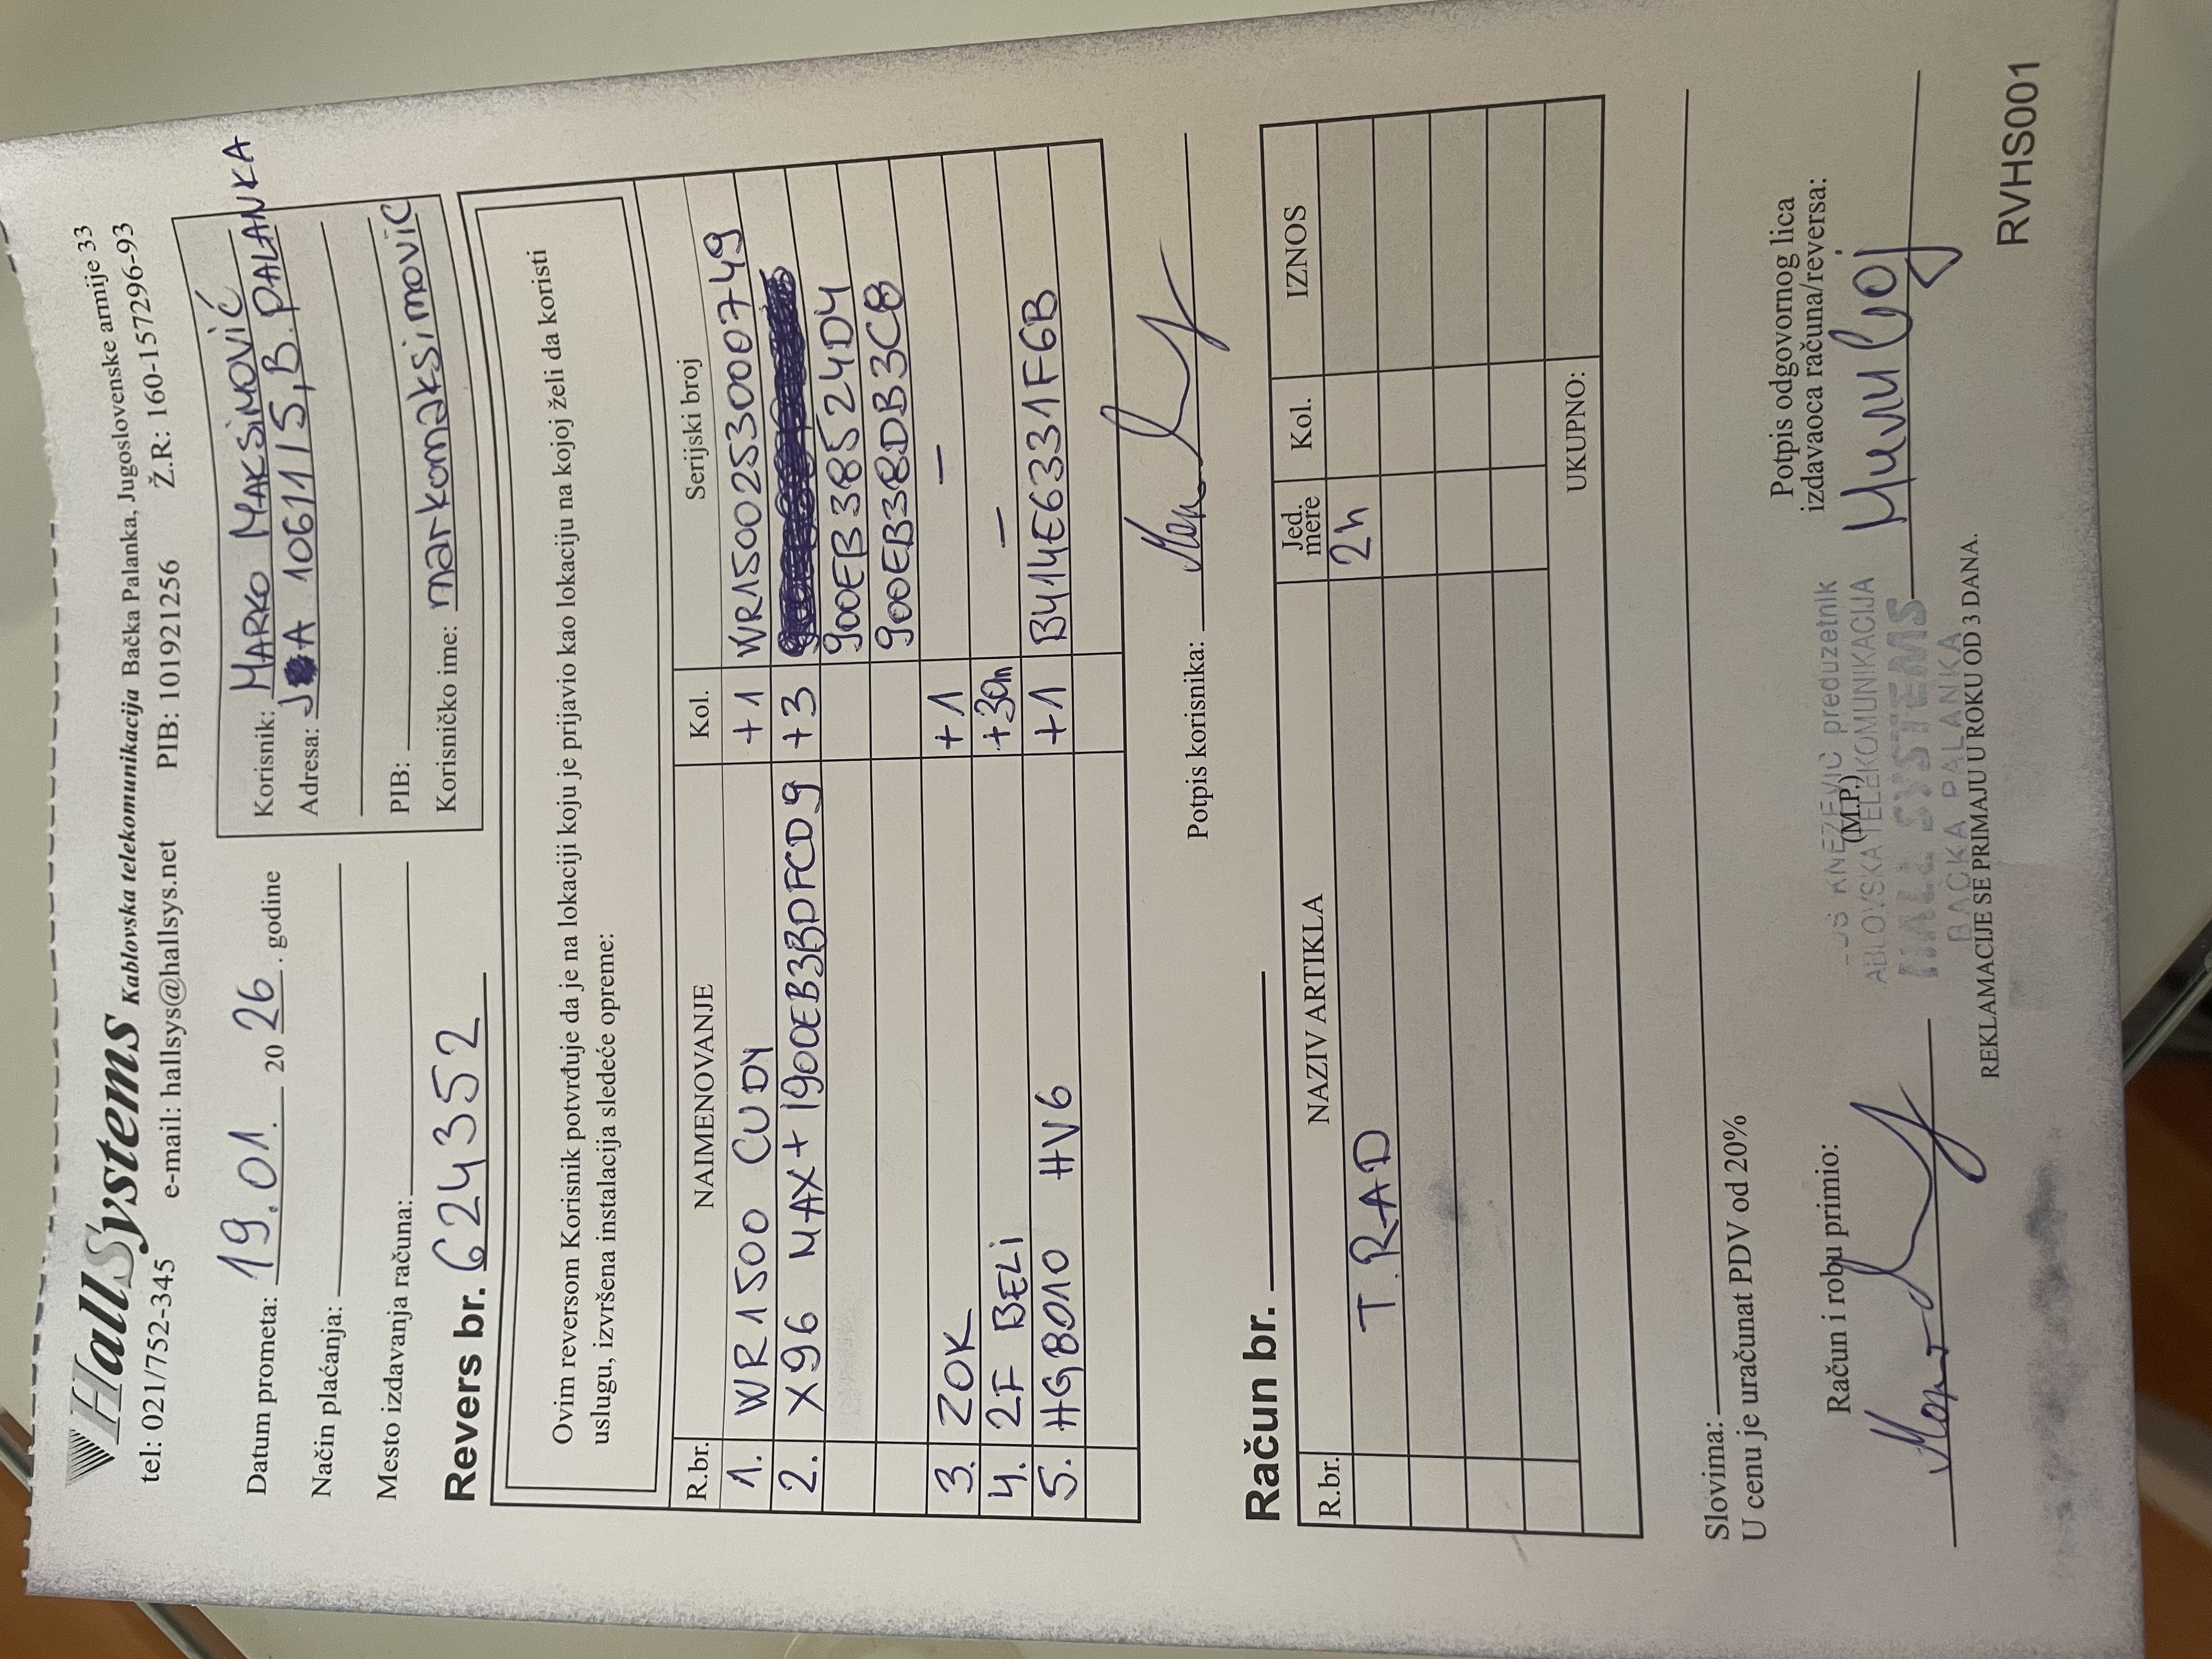 HallSystems Kablovska telekomunikacija Bačka Palanka, Jugoslovenske armije 33
tel: 021/752-345 e-mail: hallsys@hallsys.net PIB: 101921256 Ž.R: 160-157296-93
Datum prometa: 19.01. 2026. godine
Način plaćanja:
Mesto izdavanja računa:
Korisnik: MARKO MAKSIMOVIĆ
Adresa: JA 106/1/5, B. PALANKA
PIB:
Korisničko ime: markomaksimovic
Revers br. 624352
Ovim reversom Korisnik potvrđuje da je na lokaciji koju je prijavio kao lokaciju na kojoj želi da koristi
uslugu, izvršena instalacija sledeće opreme:
R.br. NAIMENOVANJE Kol. Serijski broj
1. WR1500 CUDY +1 WR1500253000749
2. X96 MAX+ 1900EB3BDFCD9 +3
900EB38524D4
900EB38DB3CB
3. ZOK +1 —
4. 2F BELI +30m —
5. HG8010 HV6 +1 B414E6331F6B
Potpis korisnika:
Račun br.
R.br. NAZIV ARTIKLA Jed. mere Kol. IZNOS
T.RAD 2h
UKUPNO:
Slovima:
U cenu je uračunat PDV od 20%
Račun i robu primio:
(M.P.)
Potpis odgovornog lica
izdavaoca računa/reversa:
KNEZEVIC preduzetnik
ABLOVSKA TELEKOMUNIKACIJA
HALL SYSTEMS
BACKA PALANKA
REKLAMACIJE SE PRIMAJU U ROKU OD 3 DANA.
RVHS001